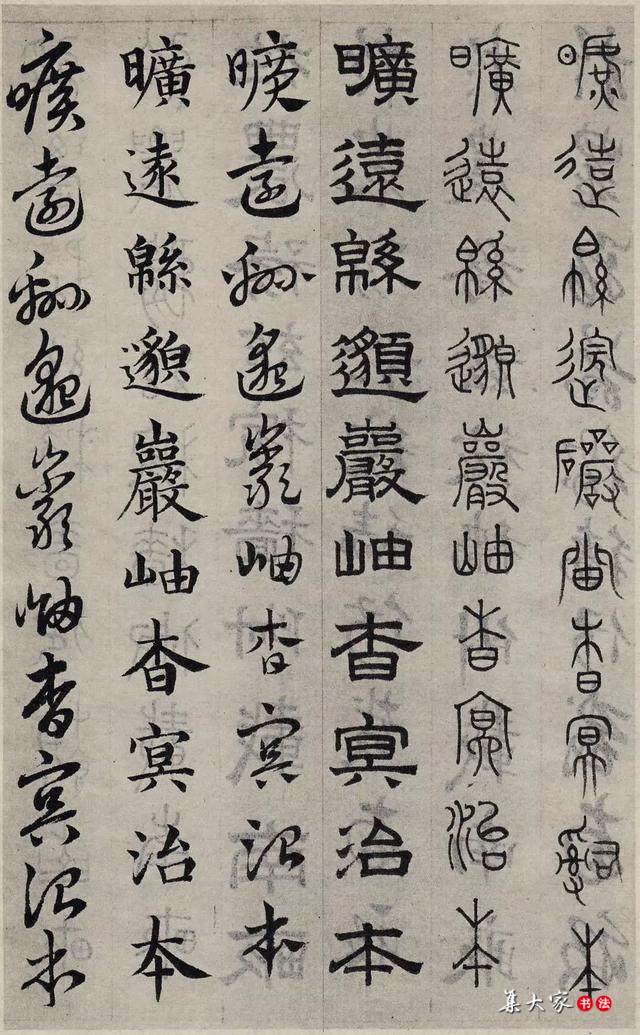 曠遠緜邈巖岫杳冥治本
曠遠緜邈巖岫杳冥治本
曠遠緜邈巖岫杳冥治本
曠遠緜邈巖岫杳冥治本
曠遠緜邈巖岫杳冥治本
曠遠緜邈巖岫杳冥治本
集大家书法